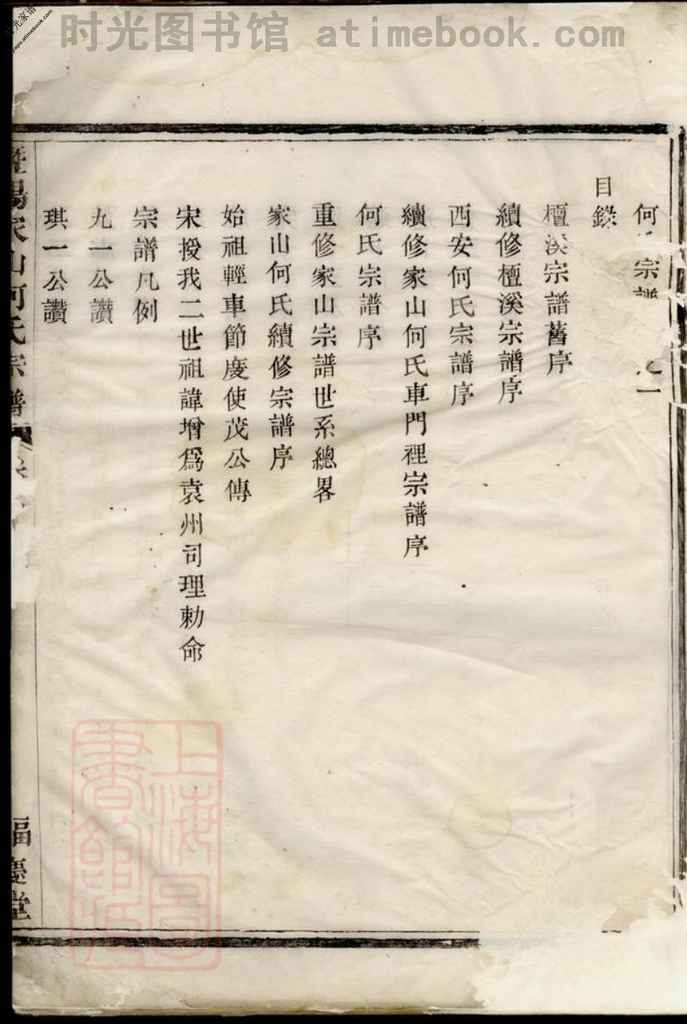 时光图书馆 atimebook.com
何氏宗譜 之一
目錄
檀溪宗譜舊序
續修檀溪宗譜序
西安何氏宗譜序
續修家山何氏車門裡宗譜序
何氏宗譜序
重修家山宗譜世系總畧
家山何氏續修宗譜序
始祖輕車節度使茂公傳
宋授我二世祖諱增爲袁州司理勅命
宗譜凡例
九一公讚
琪一公讚
暨陽家山何氏宗譜
福慶堂
上海圖書館藏